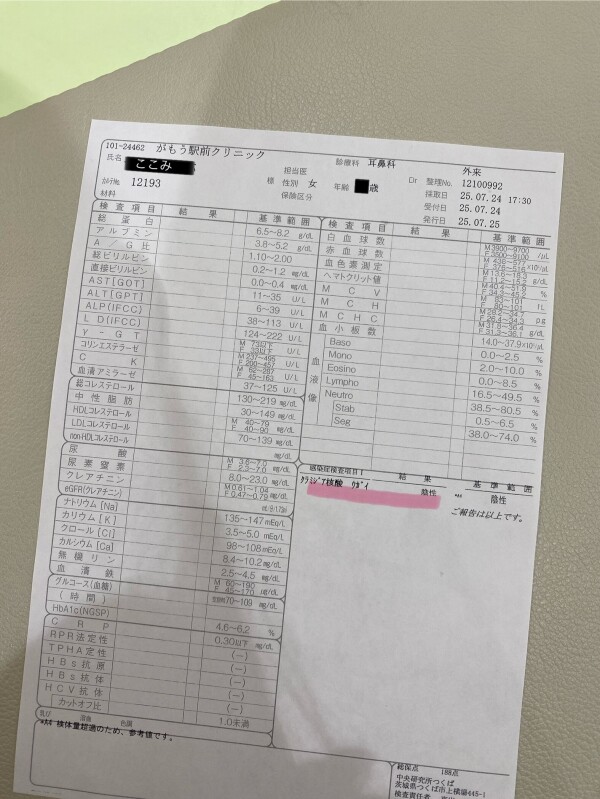 101-24462 がもう駅前クリニック
氏名 ここみ 様
担当医
診療科 耳鼻科
Dr
外来
性別 女
年齢 歳
保険区分
整理No. 12100992
採取日 25.07.24 17:30
受付日 25.07.24
発行日 25.07.25
カルテNo. 12193
材料
検査項目 結果 基準範囲
総蛋白 6.5~8.2 g/dL
アルブミン 3.8~5.2 g/dL
A/G比 1.10~2.00
総ビリルビン 0.2~1.2 mg/dL
直接ビリルビン 0.0~0.4 mg/dL
AST[GOT] 11~35 U/L
ALT[GPT] 6~39 U/L
ALP(IFCC) 38~113 U/L
LD(IFCC) 124~222 U/L
γ-GT
コリンエステラーゼ
CK
血清アミラーゼ 37~125 U/L
総コレステロール 130~219 mg/dL
中性脂肪 30~149 mg/dL
HDLコレステロール M 40~79 F 40~90 mg/dL
LDLコレステロール 70~139 mg/dL
non-HDLコレステロール
尿酸 M 3.6~7.0 F 2.3~7.0 mg/dL
尿素窒素 8.0~23.0 mg/dL
クレアチニン M 0.61~1.04 F 0.47~0.79 mg/dL
eGFR(クレアチニン)
ナトリウム[Na] 135~147 mEq/L
カリウム[K] 3.5~5.0 mEq/L
クロール[Cl] 98~108 mEq/L
カルシウム[Ca] 8.4~10.2 mg/dL
無機リン 2.5~4.5 mg/dL
血清鉄 M 60~190 F 45~170 μg/dL
グルコース(血糖) 70~109 mg/dL
(時間)
HbA1c(NGSP) 4.6~6.2 %
CRP 0.30以下 mg/dL
RPR法定性 (-)
TPHA定性 (-)
HBs抗原 (-)
HBs抗体 (-)
HCV抗体 (-)
カットオフ比 1.0未満
乳び 溶血 色調
*A4 検体量超過のため、参考値です。
検査項目 結果 基準範囲
白血球数 M 3900~9700 F 3500~9100 /μL
赤血球数
血色素測定
ヘマトクリット値
MCV
MCH
MCHC
血小板数 14.0~37.9
血液像
Baso 0.0~2.5 %
Mono 2.0~10.0 %
Eosino 0.0~8.5 %
Lympho 16.5~49.5 %
Neutro 38.5~80.5 %
Stab 0.5~6.5 %
Seg 38.0~74.0 %
感染症検査項目 結果 基準範囲
クラミジア核酸 ウガイ 陰性 *A4 陰性
ご報告は以上です。
総保点 188点
中央研究所つくば
茨城県つくば市上横場445-1
検査責任者